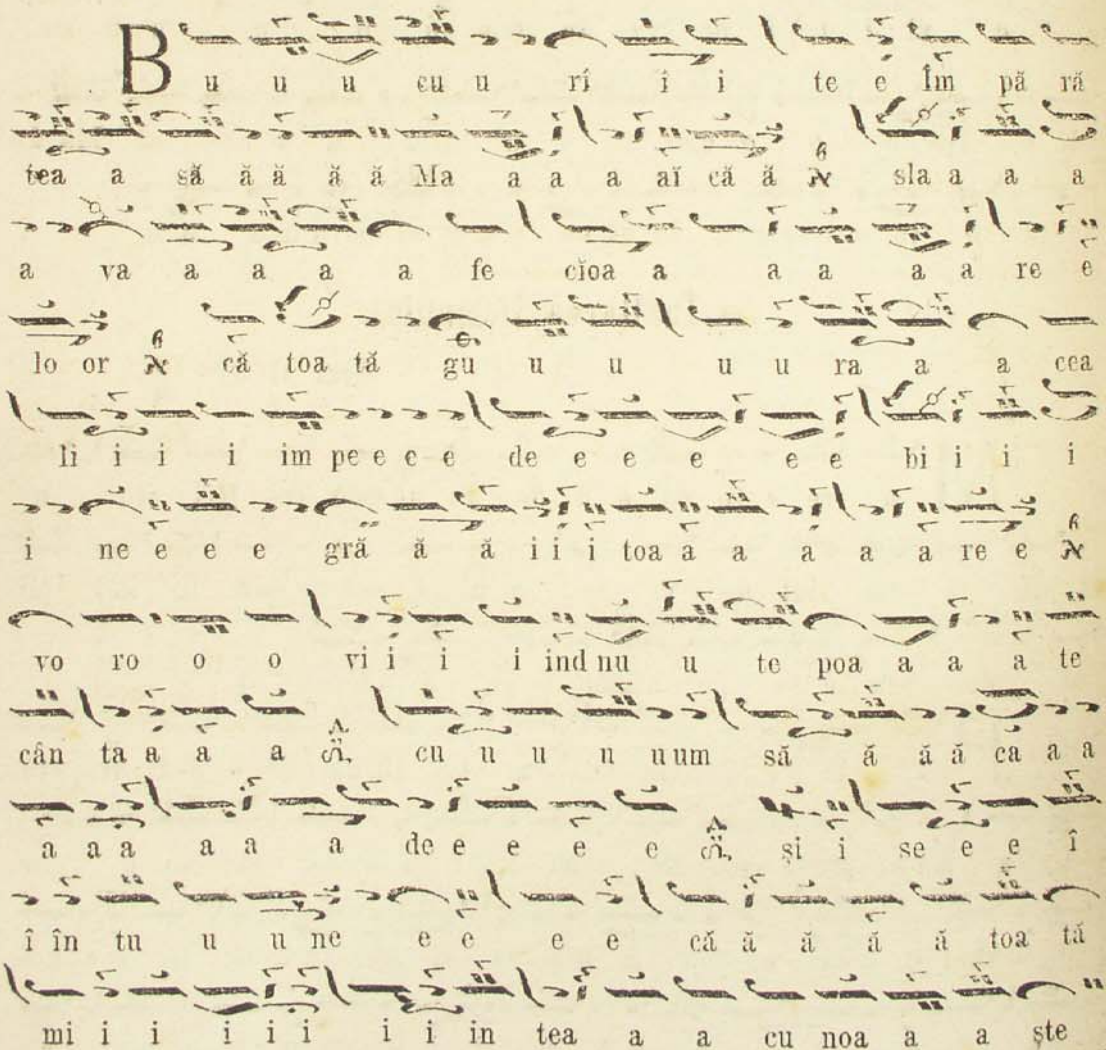 B u u u cu u rí î i te e Îm pă ră
tea a să ă ă ă ă Ma a a a aĭ că ă sla a a a
a va a a a a fe cĭoa a a a a a re e
lo or că toa tă gu u u u u ra a a cea
li i i i im pe e e e de e e e e e bi i i i
i ne e e e gră ă ă i i i toa a a a a a re e
vo ro o o vi i i i ind nu u te poa a a a te
cân ta a a a cu u u u u um să ă ă ă ca a a
a a a a a a de e e e e și i se e e î
î în tu u u ne e e e e că ă ă ă ă toa tă
mi i i i i i i i in tea a a cu noa a a ște